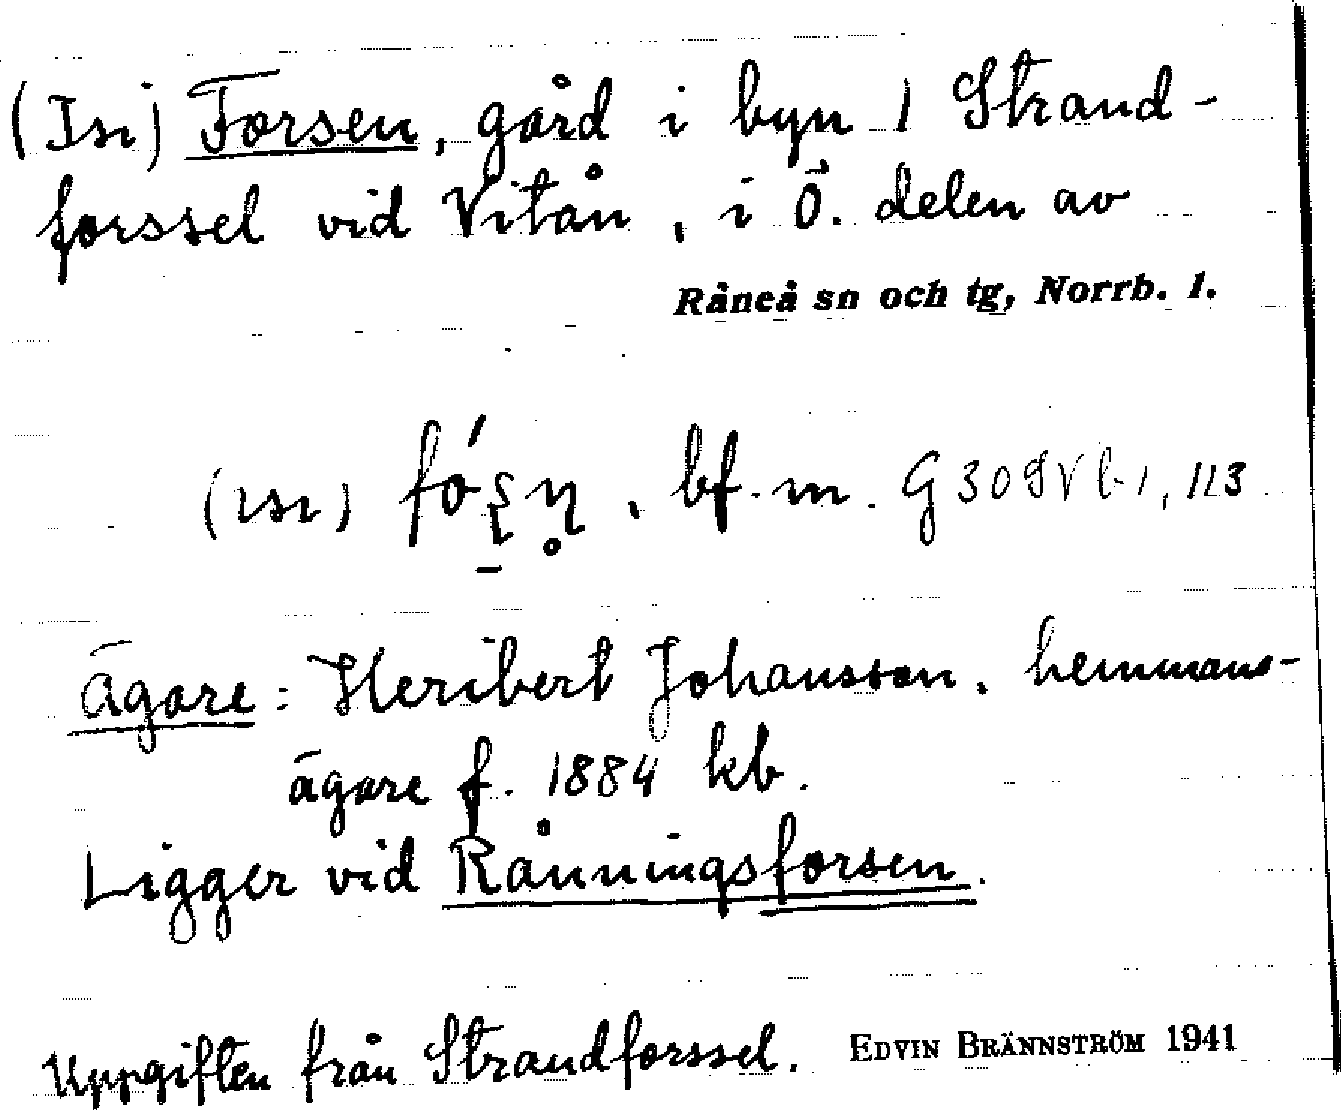 (Isı) Forsen, gård i byn 1 Strand-
forssel vid Vitån, i Ö. delen av
Råneå sn och tg, Norrb. l.
(ısı) bf. m.
Ägare: Heribert Johansson, hemmans-
ägare f. 1884 kb.
Ligger vid Rånningsforsen.
Uppgiften från Strandforssel. EDVIN BRÄNNSTRÖM 1941